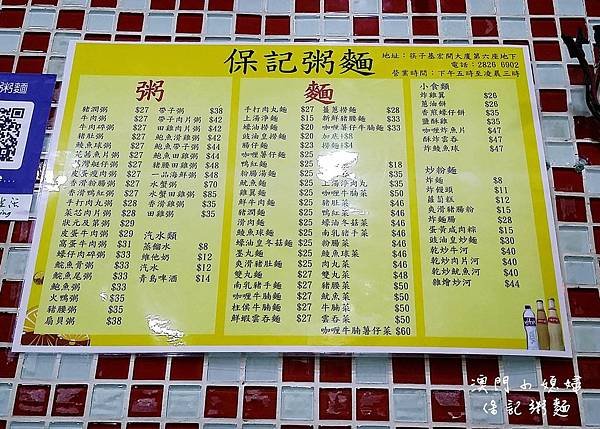 保記粥麵
地址：筷子基宏開大廈第六座地下
電話：2826 6902
營業時間：下午五時至凌晨三時
粥
豬潤粥 $27
牛肉粥 $27
牛肉碎粥 $27
豬肚粥 $27
鯪魚球粥 $27
皮蛋瘦肉粥 $27
香滑鴨紅粥 $27
手打肉丸粥 $27
菜芯肉片粥 $29
狀元及第粥 $29
皮蛋牛肉粥 $29
窩蛋牛肉粥 $31
蠔仔肉碎粥 $33
鯇魚骨粥 $33
鯇魚尾粥 $33
鮑魚粥 $33
火鴨粥 $35
豬腰粥 $35
扇貝粥 $38
帶子粥 $38
帶子肉片粥 $42
田雞肉片粥 $42
鮑魚滑雞粥 $42
鮑魚帶子粥 $44
鮑魚田雞粥 $44
豬腰田雞粥 $48
一品海鮮粥 $48
水蟹粥 $70
水蟹田雞粥
香滑雞粥 $35
田雞粥 $35
汽水類
蒸餾水 $8
維他奶 $12
汽水 $12
青島啤酒 $14
麵
手打肉丸麵 $27
上湯淨麵 $15
蠔油撈麵 $20
豉油皇撈麵 $20
腸仔麵 $25
咖喱薯仔麵 $25
鴨紅麵 $25
粉腸湯麵 $25
魷魚麵 $25
雞翼麵 $25
鮮牛肉麵 $25
豬潤麵 $25
滑肉麵 $25
鯪魚球麵 $25
蠔油皇冬菇麵 $25
墨丸麵 $25
爽滑豬肚麵 $25
雙丸麵 $25
南乳豬手麵 $27
咖喱牛腩麵 $27
柱侯牛腩麵 $27
鮮蝦雲吞麵 $27
薑蔥撈麵 $28
新鮮豬腰麵 $33
咖喱薯仔牛腩麵 $33
加底$8
淨撈
$18
上湯淨肉丸 $35
淨魷魚 $35
豬肚菜 $45
鴨紅菜 $46
蠔油冬菇菜 $46
南乳豬手菜 $46
粉腸菜 $46
鯪魚球菜 $46
肉丸菜 $46
雙丸菜 $48
豬腰菜 $50
魷魚菜 $50
咖喱牛腩菜 $50
雲吞菜 $50
咖喱牛腩薯仔菜 $60
小食類
炸雞翼 $8
蔥油餅 $8
香煎蠔仔餅 $35
鹽酥雞 $45
咖喱炸魚片 $47
酥炸雲吞 $47
炸鯪魚球 $47
炒粉麵
炸麵 $8
炸饅頭 $11
蘿蔔糕 $12
爽滑豬腸粉 $15
炸麵腸 $28
蛋黃咸肉粽 $15
豉油皇炒麵 $30
乾炒牛河 $40
乾炒肉片河 $40
乾炒魷魚河 $40
雜燴炒河 $44
粥麵
澳門小媳婦
保記粥麵